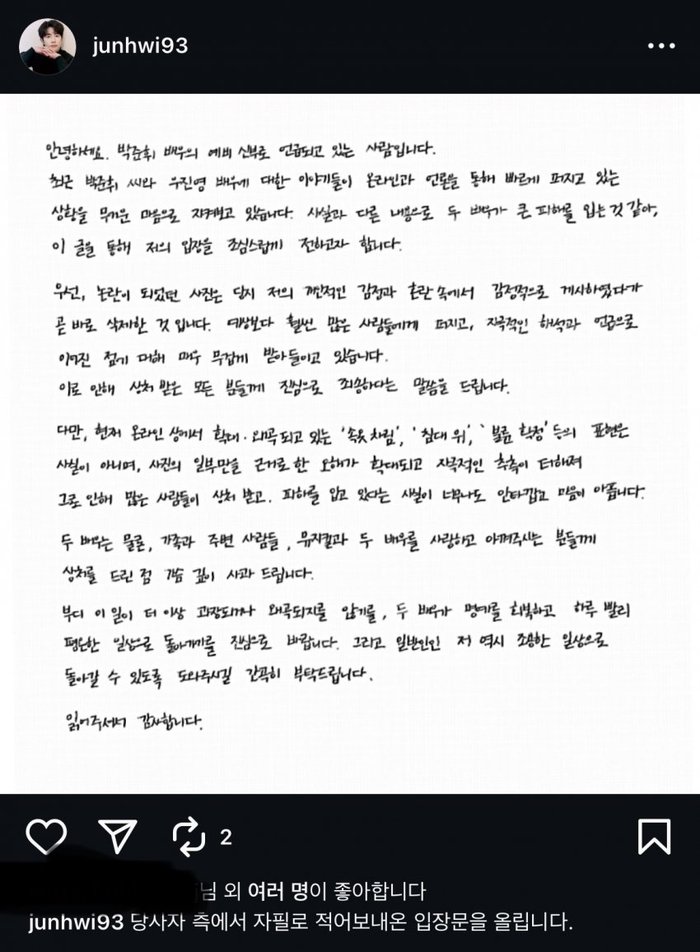 junhwi93
안녕하세요. 박준휘 배우의 예비 신부로 언급되고 있는 사람입니다.
최근 박준휘 씨와 우진영 배우에 대한 이야기들이 온라인과 언론을 통해 빠르게 퍼지고 있는
상황을 무거운 마음으로 지켜보고 있습니다. 사실과 다른 내용으로 두 배우가 큰 피해를 입는 것 같아,
이 글을 통해 저의 입장을 조심스럽게 전하고자 합니다.
우선, 논란이 되었던 사진은 당시 저의 개인적인 감정과 혼란 속에서 감정적으로 게시하였다가
곧 바로 삭제한 것 입니다. 예상보다 훨씬 많은 사람들에게 퍼지고, 자극적인 해석과 언급으로
이어진 점에 대해 매우 무겁게 받아들이고 있습니다.
이로 인해 상처 받은 모든 분들께 진심으로 죄송하다는 말씀을 드립니다.
다만, 현재 온라인 상에서 확대·왜곡되고 있는 '속옷 차림', '침대 위', '불륜 확정' 등의 표현은
사실이 아니며, 사진의 일부만을 근거로 한 오해가 확대되고 자극적인 추측이 더해져
그로 인해 많은 사람들이 상처 받고, 피해를 입고 있다는 사실이 너무나도 안타깝고 마음이 아픕니다.
두 배우는 물론, 가족과 주변 사람들, 뮤지컬과 두 배우를 사랑하고 아껴주시는 분들께
상처를 드린 점 가슴 깊이 사과 드립니다.
부디 이 일이 더 이상 과장되거나 왜곡되지를 않기를, 두 배우가 명예를 회복하고 하루 빨리
평온한 일상으로 돌아가기를 진심으로 바랍니다. 그리고 일반인인 저 역시 조용한 일상으로
돌아갈 수 있도록 도와주시길 간곡히 부탁드립니다.
읽어주셔서 감사합니다.
2
님 외 여러 명이 좋아합니다
junhwi93 당사자 측에서 자필로 적어보내온 입장문을 올립니다.